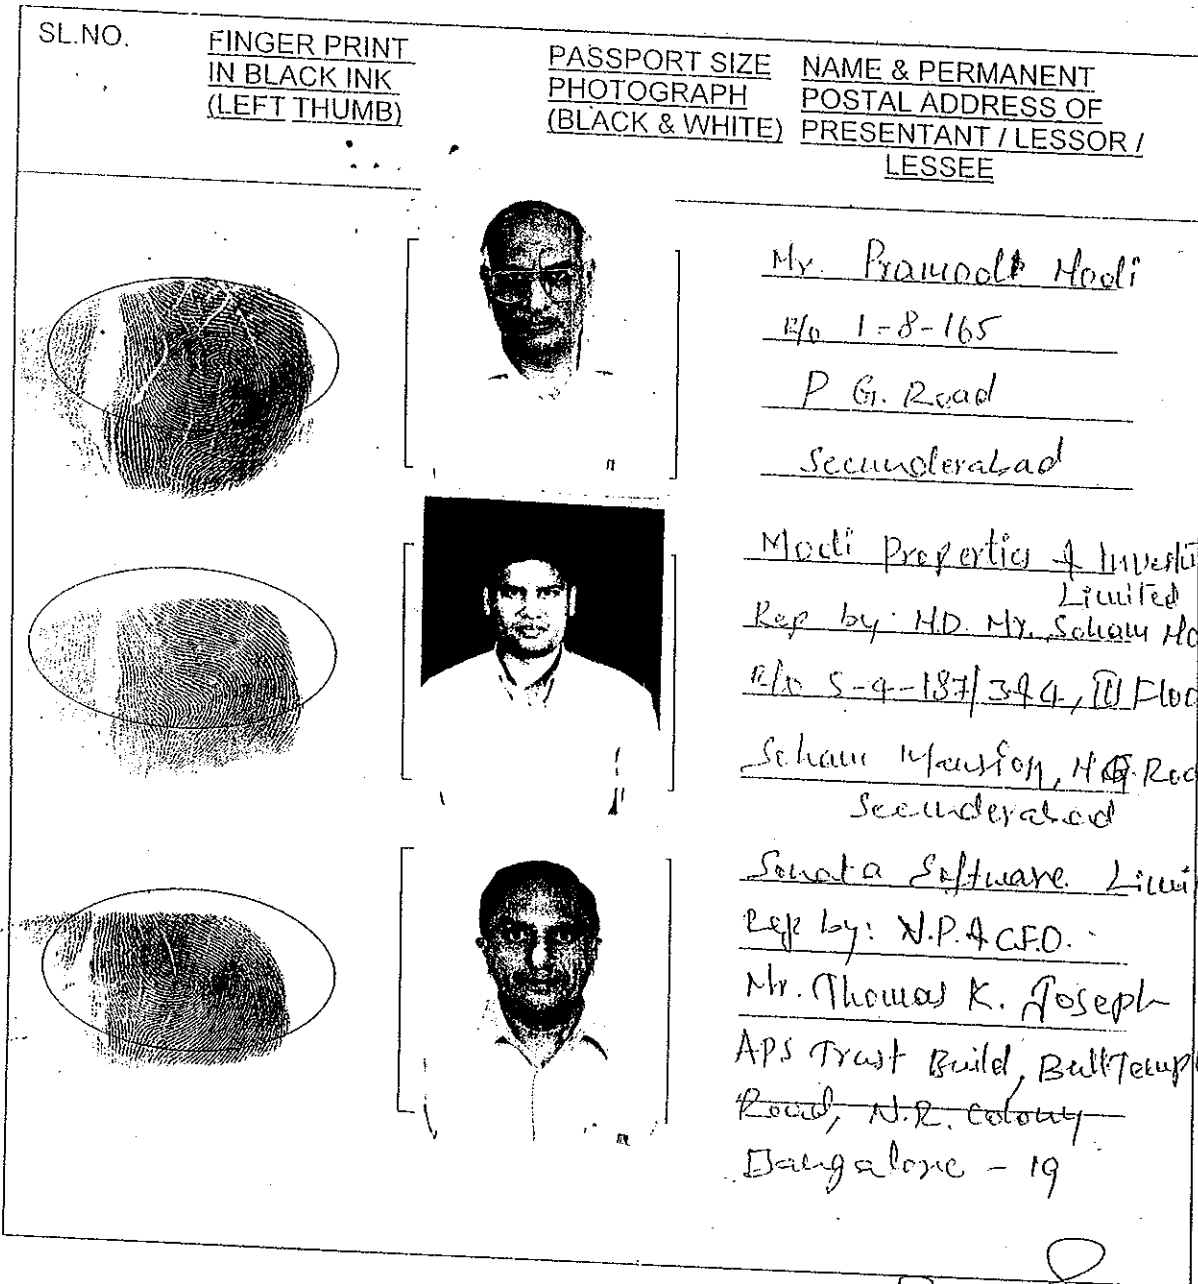 SL.NO.
FINGER PRINT
IN BLACK INK
(LEFT THUMB)
PASSPORT SIZE
PHOTOGRAPH
(BLACK & WHITE)
NAME & PERMANENT
POSTAL ADDRESS OF
PRESENTANT / LESSOR /
LESSEE
Mr. Pramodh Modi
R/o 1-8-165
P G. Road
Secunderabad
Modi Properties &
Limited
Rep by: M.D. Mr. Soham
R/o 5-4-187/3&4, III Floo
Soham Mansion, M.G. Roa
Secunderabad
Sonata Software Limi
Rep by: V.P. & C.F.O.
Mr. Thomas K. Joseph
APS Trust Build, Bull Temp
Road, N.R. Colony
Bangalore - 19